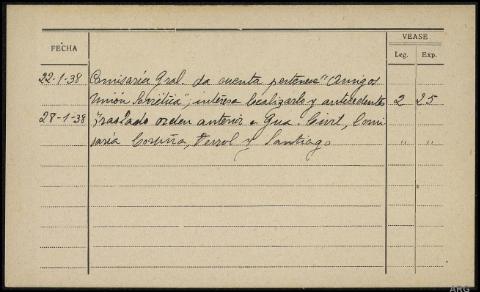 VEASE
FECHA Leg. Exp.
22-1-38 Comisaría Gral. da cuenta pertenece "Amigos
Unión Soviética", interesa localizarlo y antecedentes 2 25
28-1-38 traslado orden anterior a Gua. Civil, Comi
saría Coruña, Ferrol y Santiago " "
ARG